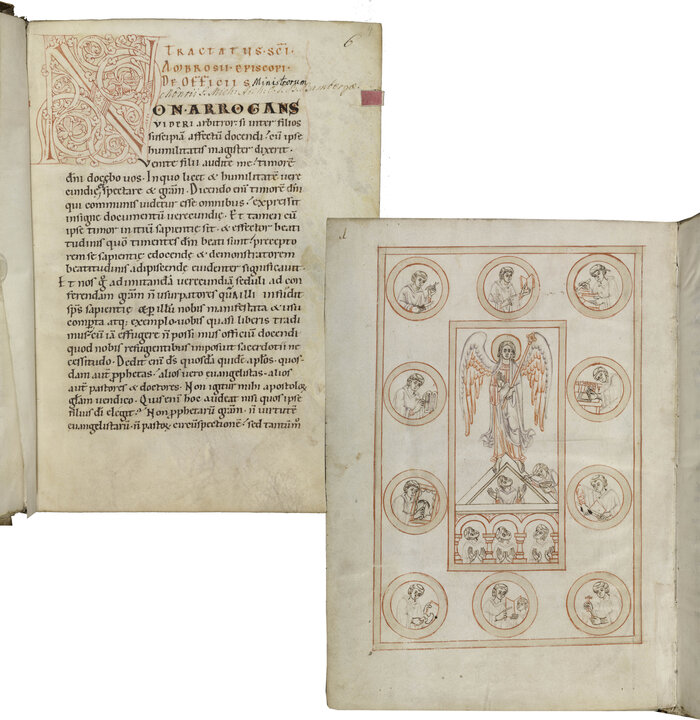 6
TRACTATUS·SCĪ
AMBROSII·EPISCOPI·
DE OFFICIIS Ministrorum
NON·ARROGANS
VIDERI arbitror·si inter filios
suscipiā affectū docendi; cū ipse
humilitatis magister dixerit·
Venite filii audite me; timorē
dn̄i docebo vos· In quo licet & humilitatē vere
cundię spectare & grām· Dicendo enī timorē dn̄i
qui communis videtur esse omnibus; expressit
insigne documentū verecundię· Et tamen cū
ipse timor initiū sapientię sit· & effector beati
tudinis quō timentes dn̄m beati sunt; precepto
rem se sapientię edocendę & demonstratorem
beatitudinis adipiscendę evidenter significavit·
Et nos ad imitandā verecundiā seduli ad con
ferendam grām n̄ usurpatores quę illi infudit
sp̄s sapientię ea p illū nobis manifestata & usu
comperta atq; exemplo· nobis quasi liberis tradi
mus· cū iā effugere n̄ possimus officiū docendi
quod nobis refugientibus imposuit sacerdotii ne
cessitudo· Dedit enī ds̄ quosdā quidē aplōs· quos-
dam aut̄ prophetas· alios vero evangelistas· alios
aut̄ pastores & doctores· Non igitur mihi apostolorū
glām vendico· Quis enī hoc audeat nisi quos ipse
filius dī elegit? Non pphetarū grām· n̄ virtutē
evangelistarū· n̄ pastorū circūspectionē; sed tantūm